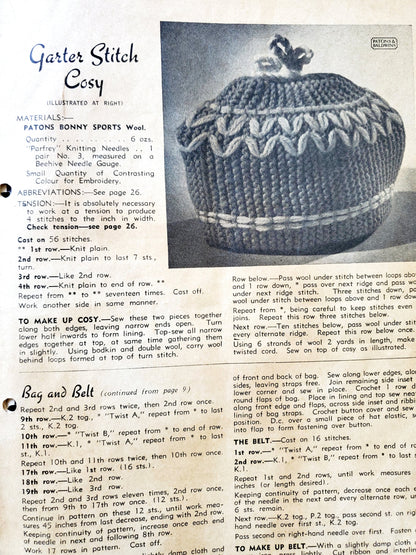 Garter Stitch
Cosy
(ILLUSTRATED AT RIGHT)
PATONS &
BALDWINS
MATERIALS:—
PATONS BONNY SPORTS Wool.
Quantity . . . . . . . . . . 6 ozs.
"Porfrey" Knitting Needles . . 1
pair No. 3, measured on a
Beehive Needle Gauge.
Small Quantity of Contrasting
Colour for Embroidery.
ABBREVIATIONS:—See page 26.
TENSION:—It is absolutely necessary
to work at a tension to produce
4 stitches to the inch in width.
Check tension—see page 26.
Cast on 56 stitches.
** 1st row.—Knit plain.
2nd row.—Knit plain to last 7 sts,
turn.
3rd row.—Like 2nd row.
4th row.—Knit plain to end of row. **
Repeat from ** to ** seventeen times. Cast off.
Work another side in same manner.
TO MAKE UP COSY.—Sew these two pieces together
along both edges, leaving ends open. Turn
lower half inwards to form lining. Top-sew all narrow
edges together at top, at same time gathering them
in slightly. Using bodkin and double wool, carry wool
behind loops formed at top of turn stitch.
Row below.—Pass wool under stitch between loops above
and 1 row down, * pass over next ridge and pass wool
under next ridge stitch. Three stitches down, pass
wool under stitch between loops above and 1 row down.
Repeat from *, being careful to keep stitches even at
joins. Repeat this row three stitches below.
Next row.—Ten stitches below, pass wool under stitch
every alternate ridge. Repeat this row below once.
Using 6 strands of wool 2 yards in length, make
twisted cord. Sew on top of cosy as illustrated.
Bag and Belt (continued from page 9)
Repeat 2nd and 3rd rows twice, then 2nd row once.
9th row.—K.2 tog., * "Twist A," repeat from * to last
2 sts., K.2 tog.
10th row.—* "Twist B," repeat from * to end of row.
11th row.—K.1, * "Twist A," repeat from * to last
st., K.1.
Repeat 10th and 11th rows twice, then 10th row once.
17th row.—Like 1st row. (16 sts.).
18th row.—Like 2nd row.
19th row.—Like 3rd row.
Repeat 2nd and 3rd rows eleven times, 2nd row once,
then from 9th to 17th row once. (12 sts.).
Continue in pattern on these 12 sts., until work mea-
sures 45 inches from last decrease, ending with 2nd row.
Keeping continuity of pattern, increase once each end
of needle in next and following 8th row.
Work 17 rows in pattern. Cast off.
of front and back of bag. Sew along lower edges, along
sides, leaving straps free. Join remaining side
lower corner and sew in place. Crochet 1 row d.c.
round flaps of bag. Place in lining and top sew neatly
along front edge and flaps, across side inset and ribbon
lining of bag straps. Crochet button cover and sew
position. D.c. over a small piece of hat elastic, sew
into flap to form fastening over button.
THE BELT.—Cast on 16 stitches.
1st row.—* "Twist A," repeat from * to end of row.
2nd row.—K.1, * "Twist B," repeat from * to last st.
K.1.
Repeat 1st and 2nd rows, until work measures
inches (or length desired).
Keeping continuity of pattern, decrease once each end
of the needle in the next and every alternate row, until
6 sts. remain.
Next row.—K.2 tog., P.2 tog., pass second st. on right
hand needle over first st., K.2 tog.
Pass second on right-hand needle over first. Fasten
TO MAKE UP BELT.—With a slightly damp cloth and